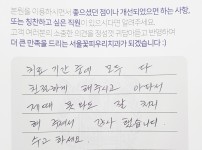 본원을 이용하시면서 좋으셨던 점이나 개선되었으면 하는 사항,
또는 칭찬하고 싶은 직원이 있으시다면 알려주세요.
고객 여러분의 소중한 의견을 정성껏 귀담아듣고 반영하여
더 큰 만족을 드리는 서울꽃피우리치과가 되겠습니다 :)
치료 기간 동안 모두 다
친절하게 해주시고 아파서
올때 뿐 아니 잘 치료
해 주셔서 감사 했습니다.
수고 하세요.